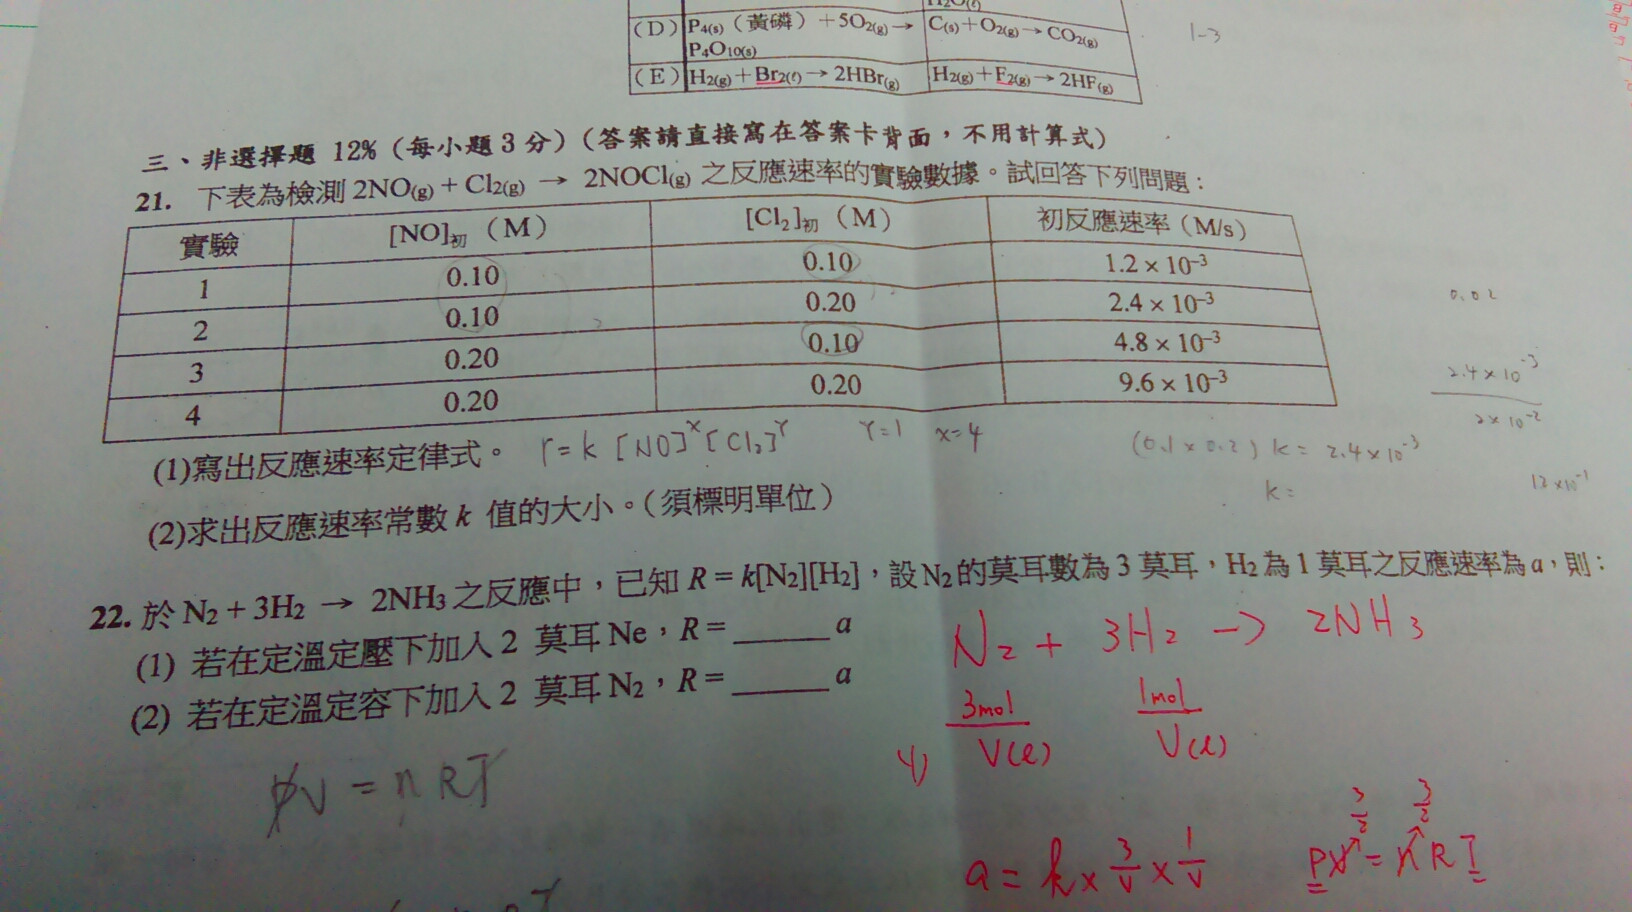 H₂O(ℓ)
(D) P₄(s)（黃磷）+5O₂(g)→ P₄O₁₀(s) C(s)+O₂(g)→CO₂(g)
(E) H₂(g)+Br₂(ℓ)→2HBr(g) H₂(g)+F₂(g)→2HF(g)
1-3
三、非選擇題 12%（每小題3分）（答案請直接寫在答案卡背面，不用計算式）
21. 下表為檢測 2NO(g) + Cl₂(g) → 2NOCl(g) 之反應速率的實驗數據。試回答下列問題：
實驗 [NO]初（M） [Cl₂]初（M） 初反應速率（M/s）
1 0.10 0.10 1.2 × 10⁻³
2 0.10 0.20 2.4 × 10⁻³
3 0.20 0.10 4.8 × 10⁻³
4 0.20 0.20 9.6 × 10⁻³
0.02
2.4×10⁻³
2×10⁻²
(1)寫出反應速率定律式。 r=k [NO]ˣ[Cl₂]ʸ Y=1 x=4
(0.1×0.2) k = 2.4×10⁻³
k= 12×10⁻¹
(2)求出反應速率常數 k 值的大小。（須標明單位）
22. 於 N₂ + 3H₂ → 2NH₃ 之反應中，已知 R = k[N₂][H₂]，設 N₂ 的莫耳數為 3 莫耳，H₂ 為 1 莫耳之反應速率為 a，則：
(1) 若在定溫定壓下加入 2 莫耳 Ne，R = ______ a
(2) 若在定溫定容下加入 2 莫耳 N₂，R = ______ a
N₂ + 3H₂ → 2NH₃
3mol 1mol
V(ℓ) V(ℓ)
PV = nRT
a = k × 3/V × 1/V
3/2 3/2
PV = nRT